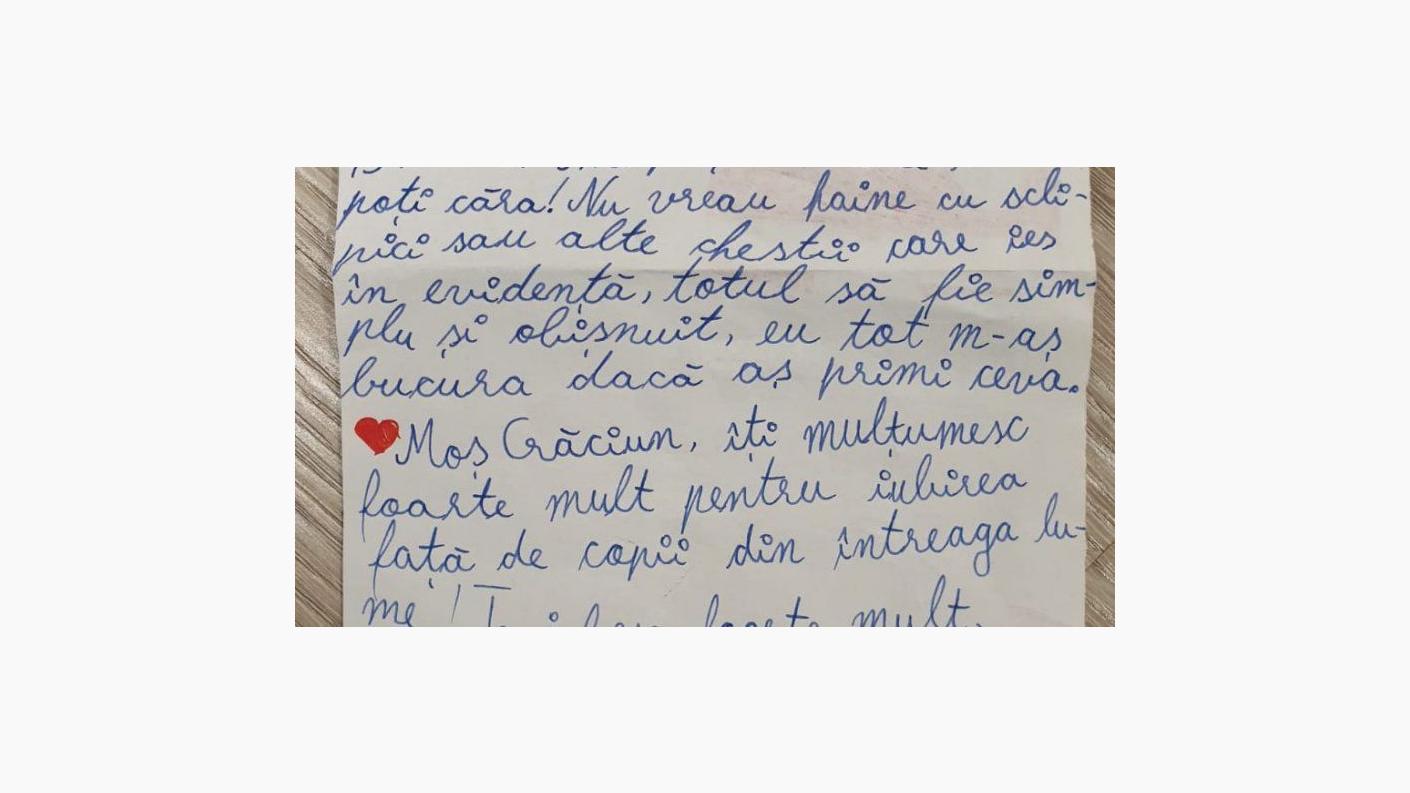 poți căra! Nu vreau haine cu scli-
pici sau alte chestii care ies
în evidență, totul să fie sim-
plu și obișnuit, eu tot m-aș
bucura dacă aș primi ceva.
Moș Crăciun, îți mulțumesc
foarte mult pentru iubirea
față de copii din întreaga lu-
me! foarte mult,